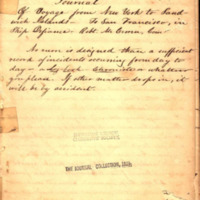 Journal
Of Voyage from New York to Sand
wich Islands - To San Francisco, in
Ship Defiance Robt McCerran, Com
As mem is designed than a sufficient
record of incidents occurring from day to
day - a whatever
in place. If other matter drops in, it
will be by accident.
THE COLLECTION,